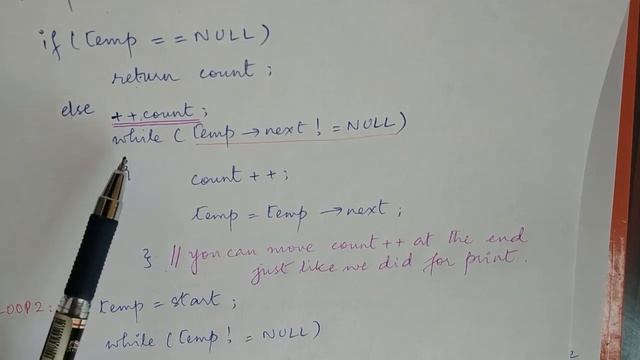 if (temp == NULL)
return count ;
else ++count ;
while ( temp → next ! = NULL)
{ count ++ ;
temp = temp → next ;
} // you can move count ++ at the end
just like we did for print .
LOOP 2 : temp = start ;
while (temp ! = NULL)
2